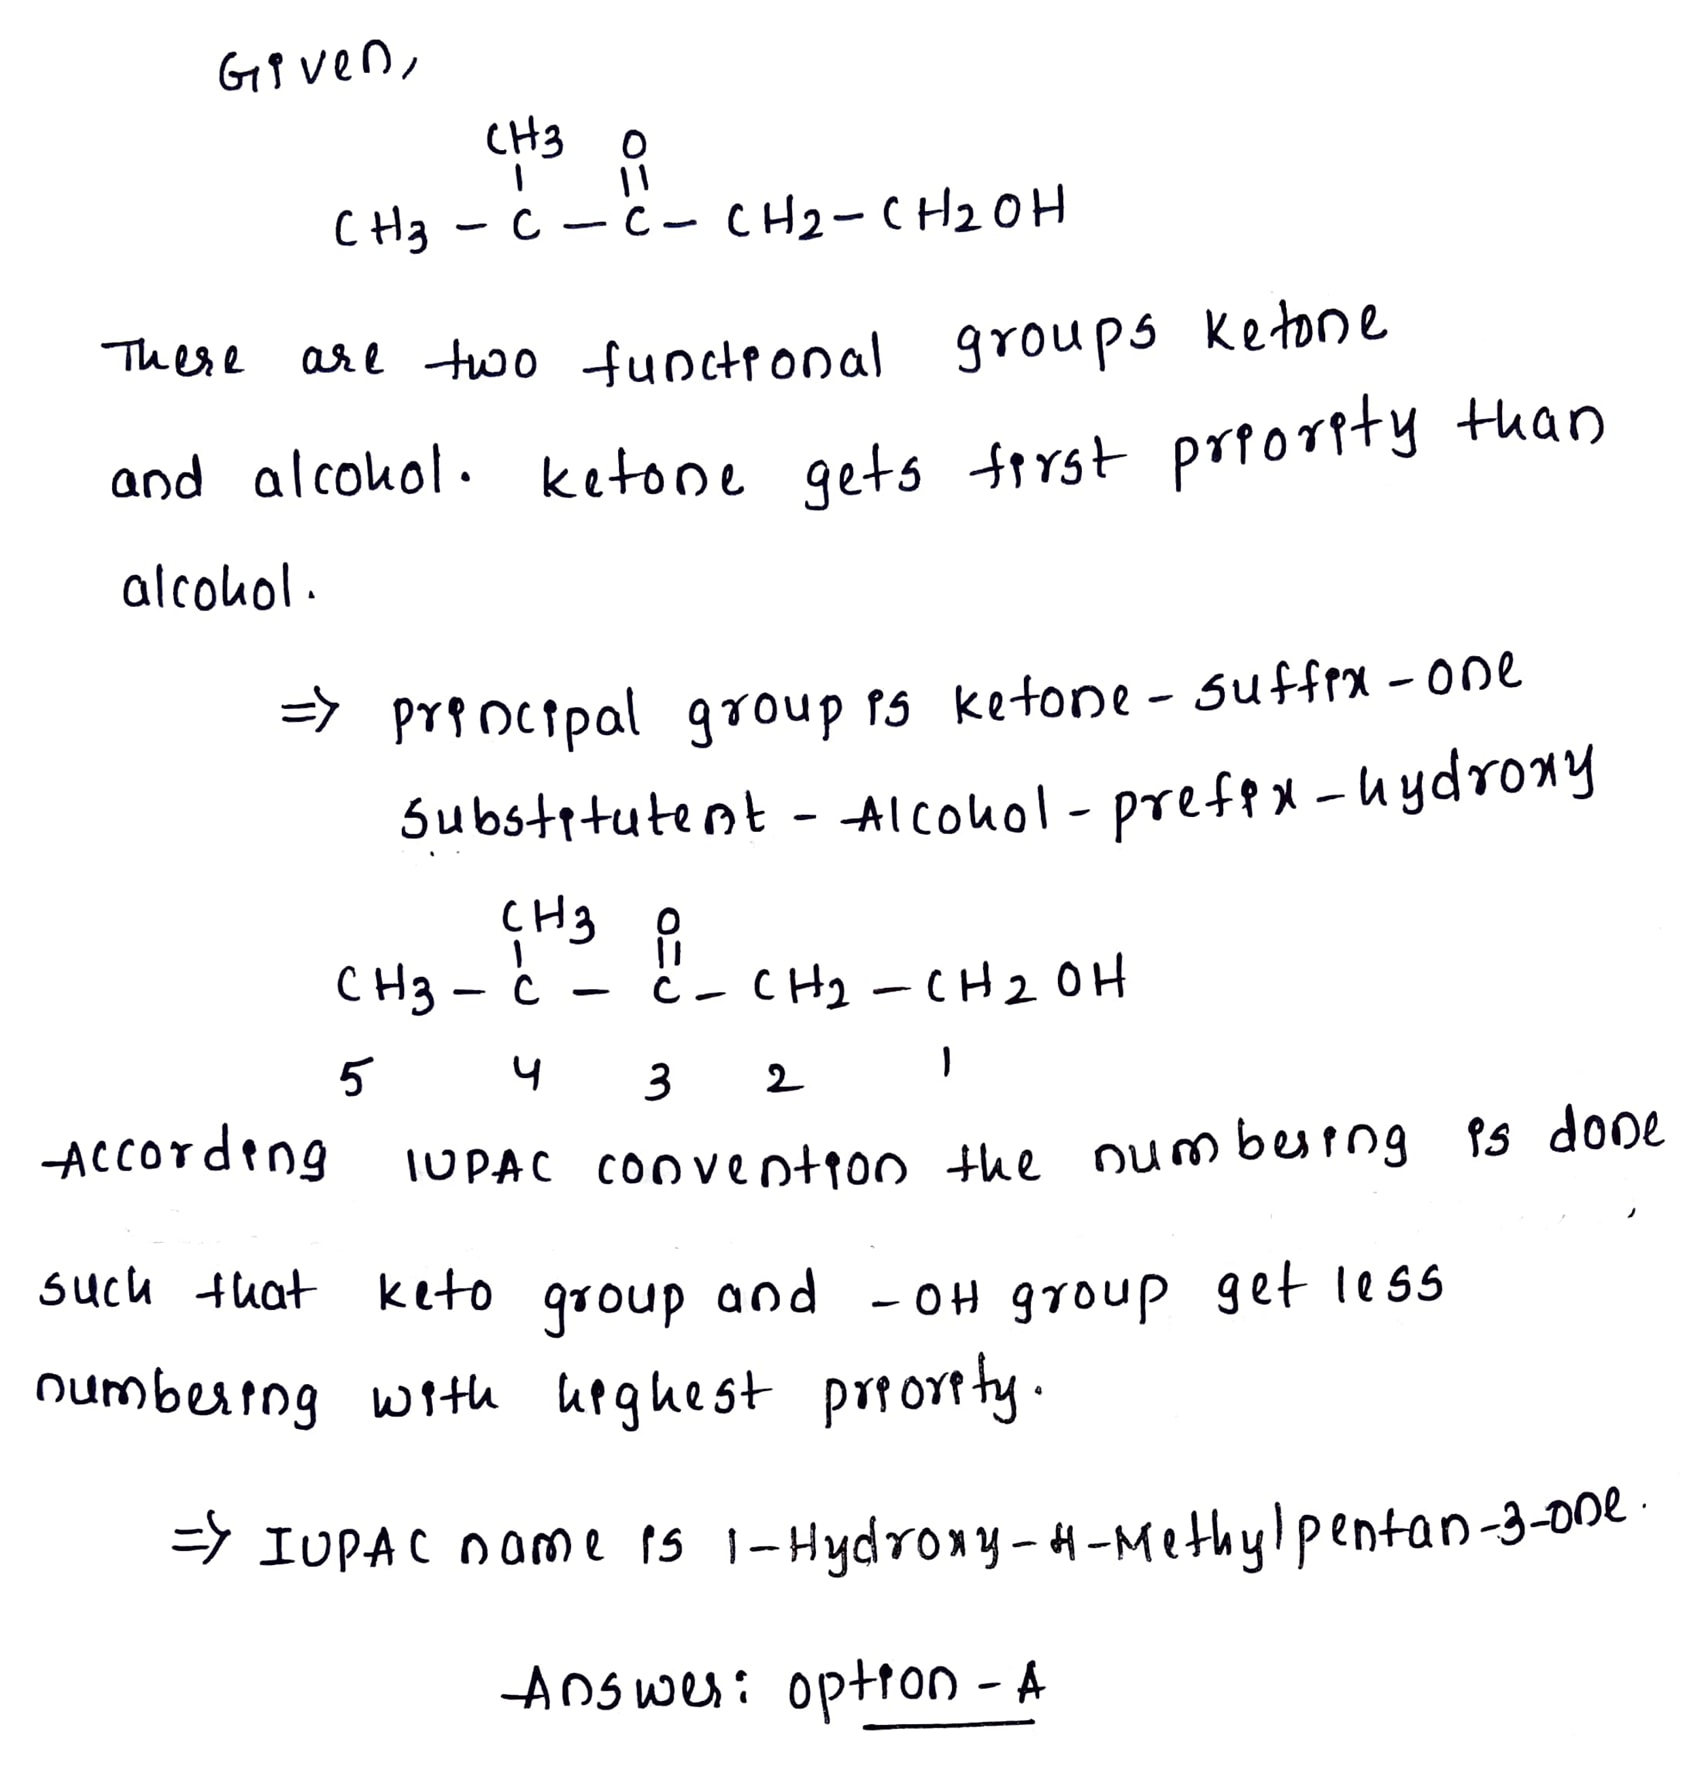 Given,
CH3 O
| ||
CH3 - C - C - CH2 - CH2OH
There are two functional groups ketone
and alcohol. ketone gets first priority than
alcohol.
=> principal group is ketone - suffix - one
substitutent - Alcohol - prefix - hydroxy
CH3 O
| ||
CH3 - C - C - CH2 - CH2OH
5 4 3 2 1
According IUPAC convention the numbering is done
such that keto group and -OH group get less
numbering with highest priority.
=> IUPAC name is 1-Hydroxy-4-Methylpentan-3-one.
Answer: option - A